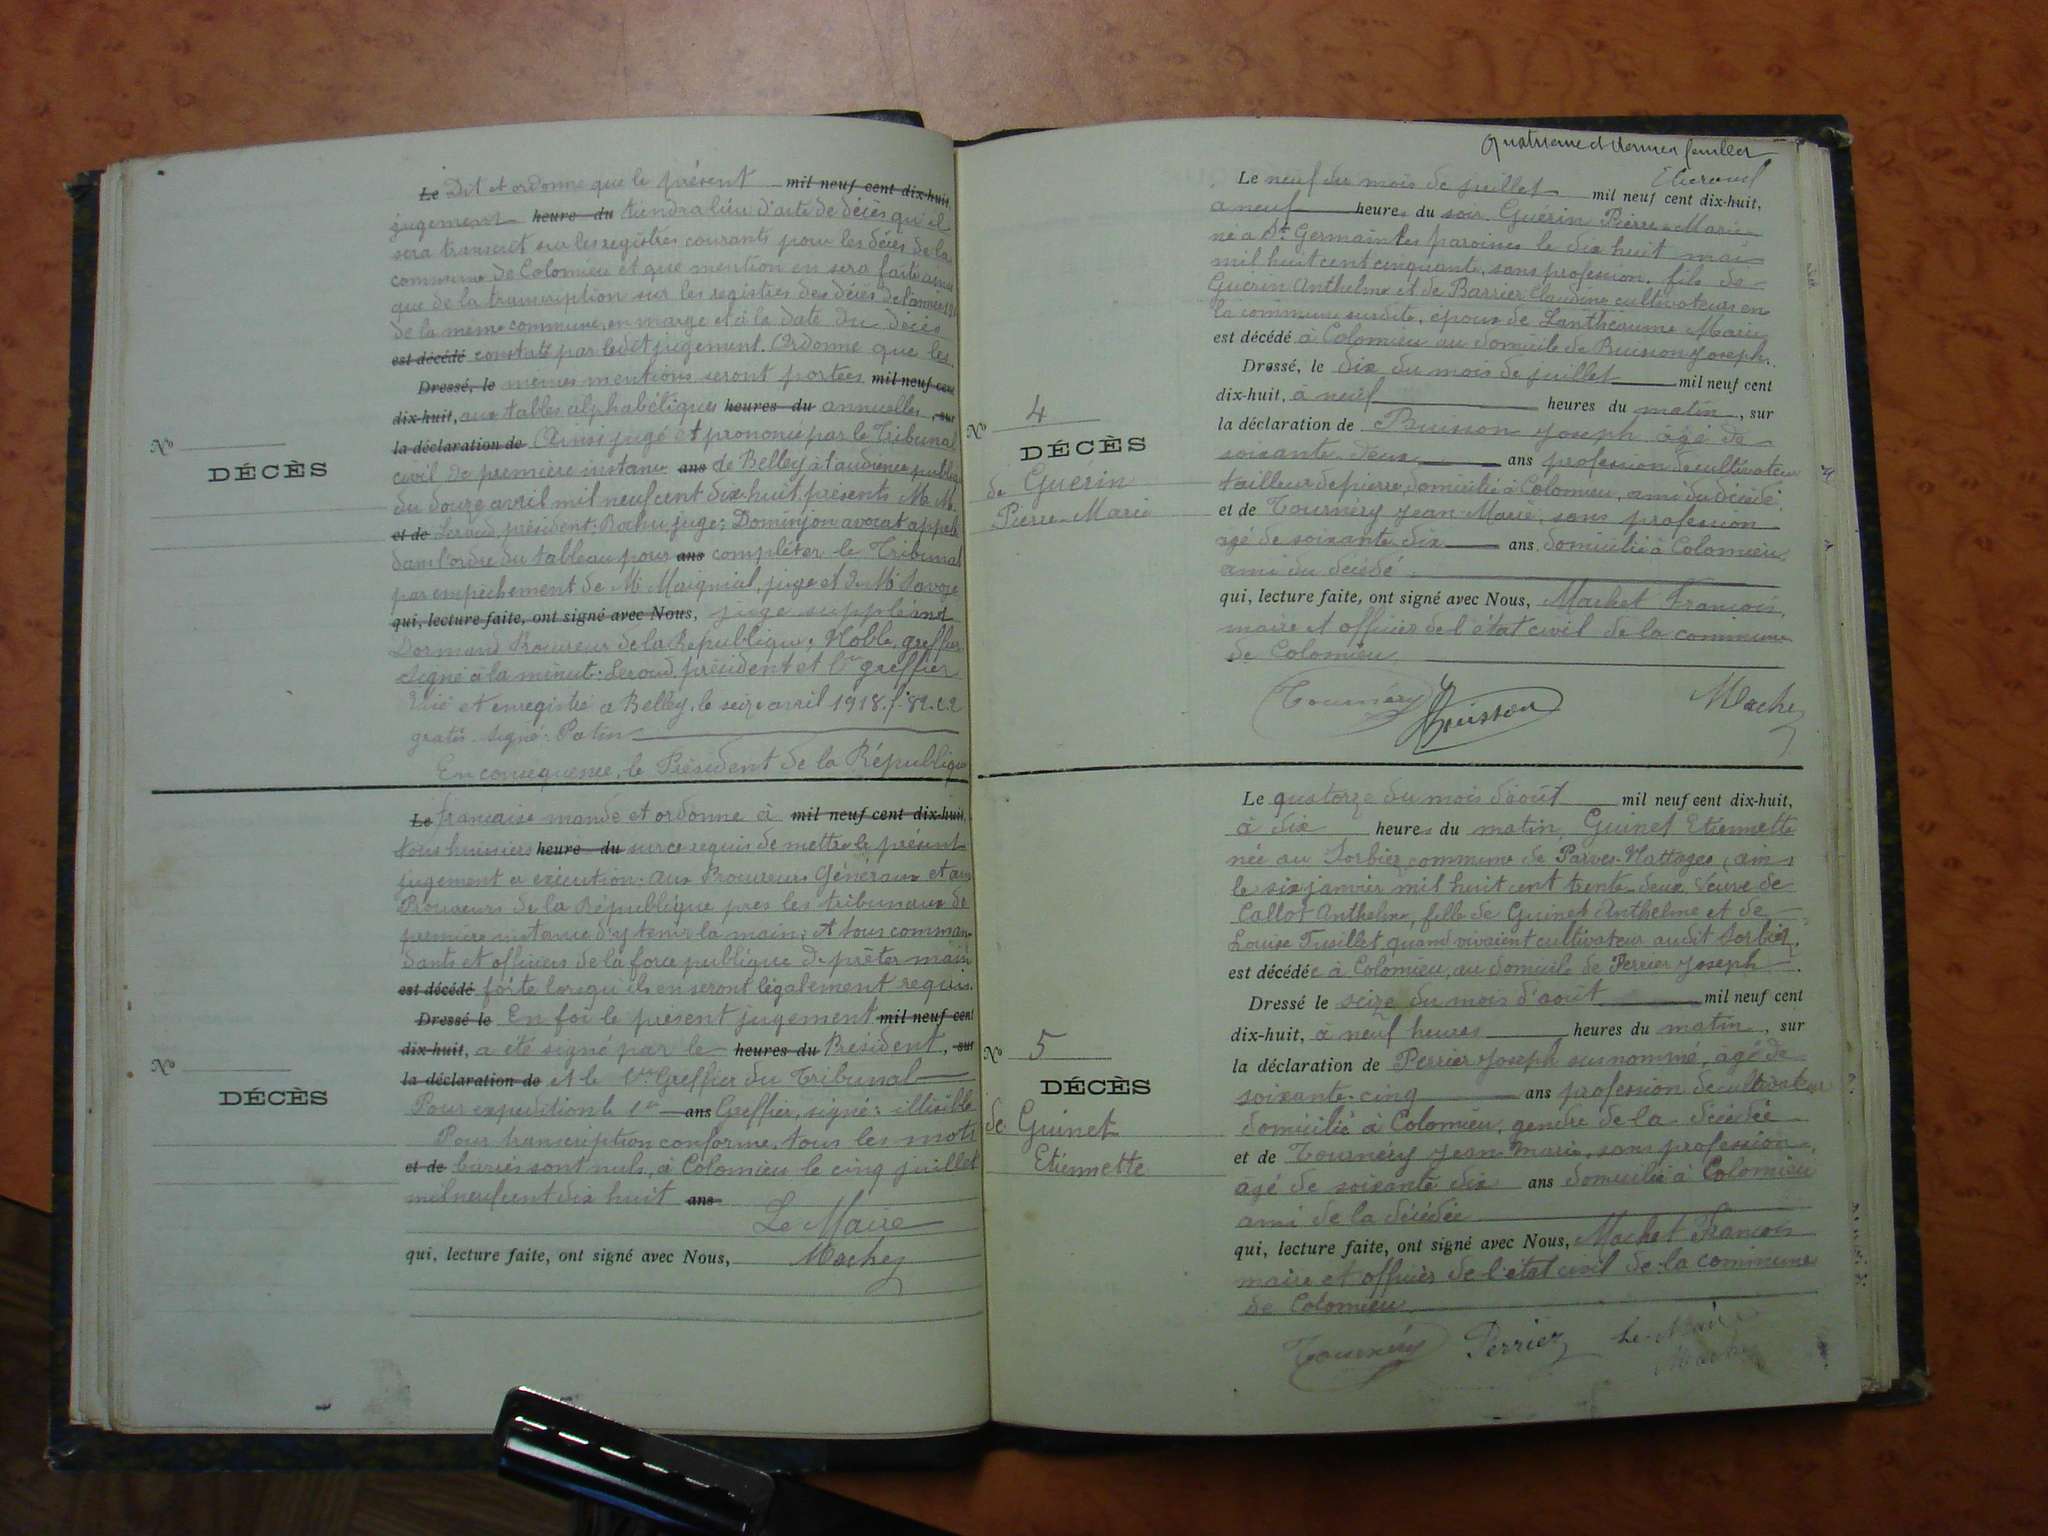 Le Dit et ordonne que le présent mil neuf cent dix-huit,
jugement heure du tiendra lieu d'acte de décès qu'il
sera transcrit sur les registres courants pour les décès de la
commune de Colomieu et que mention en sera faite ainsi
que de la transcription sur les registres des décès de l'année
de la même commune, en marge et à la date du décès
est décédé constaté par ledit jugement. Ordonne que les
Dressé, le mêmes mentions seront portées mil neuf cent
dix-huit, aux tables alphabétiques heures du annuelles, sur
la déclaration de Ainsi jugé et prononcé par le Tribunal
civil de première instance ans de Belley à l'audience publique
du douze avril mil neuf cent dix-huit, présents M.M.
et de Leroud, président; Rochu, juge; Dominjon avocat appelé
dans l'ordre du tableau pour ans compléter le Tribunal
par empêchement de M. Maignial, juge et de M. Savoye
qui, lecture faite, ont signé avec Nous, juge suppléant
Dormand Procureur de la République; Noble, greffier.
Signé à la minute: Leroud, président et greffier
Visé et enregistré à Belley, le seize avril 1918. f. 82. c. 2
gratis. signé: Patin
En conséquence, le Président de la République
N° DÉCÈS
Le française mande et ordonne à mil neuf cent dix-huit,
tous huissiers heure du sur ce requis de mettre le présent
jugement à exécution. aux Procureurs Généraux et aux
Procureurs de la République près les tribunaux de
première instance d'y tenir la main; et tous comman-
dants et officiers de la force publique de prêter main
est décédé forte lorsqu'ils en seront légalement requis.
Dressé le En foi le présent jugement mil neuf cent
dix-huit, a été signé par le heures du Président, sur
la déclaration de et le Greffier du Tribunal
Pour expédition le 1er ans Greffier, signé: illisible
Pour transcription conforme, tous les mots
et de barrés sont nuls, à Colomieu le cinq juillet
mil neuf cent dix huit ans
Le Maire
qui, lecture faite, ont signé avec Nous, Machet
N° DÉCÈS
Quatrième et dernier feuillet
Le neuf du mois de juillet mil neuf cent dix-huit,
à neuf heures du soir Guérin Pierre-Marie
né à St Germain les paroisses le dix huit mai
mil huit cent cinquante, sans profession, fils de
Guérin Anthelme et de Barrier Claudine cultivateurs en
la commune susdite, époux de Lanthéaume Marie
est décédé à Colomieu au domicile de Buisson Joseph.
Dressé, le dix du mois de juillet mil neuf cent
dix-huit, à neuf heures du matin, sur
la déclaration de Buisson Joseph âgé de
soixante deux ans profession de cultivateur
tailleur de pierre, domicilié à Colomieu, ami du décédé.
et de Tournéry Jean-Marie, sans profession
âgé de soixante dix ans domicilié à Colomieu
ami du décédé
qui, lecture faite, ont signé avec Nous, Machet François,
maire et officier de l'état civil de la commune
de Colomieu
Tournéry Buisson Machet
N° 4
DÉCÈS
de Guérin
Pierre-Marie
Le quatorze du mois d'août mil neuf cent dix-huit,
à dix heures du matin, Guinet Etiennette
née au Sorbier commune de Parves-Nattages, ain,
le six janvier mil huit cent trente-deux, veuve de
Callot Anthelme, fille de Guinet Anthelme et de
Louise Trusillet, quand vivaient cultivateur au dit Sorbier,
est décédée à Colomieu, au domicile de Perrier Joseph.
Dressé le seize du mois d'août mil neuf cent
dix-huit, à neuf heures heures du matin, sur
la déclaration de Perrier Joseph susnommé, âgé de
soixante-cinq ans profession de cultivateur
domicilié à Colomieu, gendre de la décédée
et de Tournéry Jean Marie, sans profession,
âgé de soixante dix ans domicilié à Colomieu
ami de la décédée
qui, lecture faite, ont signé avec Nous, Machet François
maire et officier de l'état civil de la commune
de Colomieu.
Tournéry Perrier Le Maire
Machet
N° 5
DÉCÈS
de Guinet
Etiennette